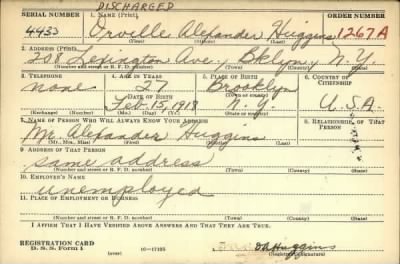 DISCHARGED
SERIAL NUMBER 1. NAME (Print) ORDER NUMBER
4433 Orville Alexander Huggins 1267A
(First) (Middle) (Last)
2. ADDRESS (Print)
208 Lexington Ave., Bklyn, N.Y.
(Number and street or R. F. D. number) (Town) (County) (State)
3. TELEPHONE 4. AGE IN YEARS 5. PLACE OF BIRTH 6. COUNTRY OF CITIZENSHIP
none 27 Brooklyn
DATE OF BIRTH (Town or county)
Feb. 15, 1918 N.Y. U.S.A.
(Exchange) (Number) (Mo.) (Day) (Yr.) (State or country)
7. NAME OF PERSON WHO WILL ALWAYS KNOW YOUR ADDRESS 8. RELATIONSHIP OF THAT PERSON
Mr. Alexander Huggins
(Mr., Mrs., Miss) (First) (Middle) (Last)
9. ADDRESS OF THAT PERSON
same address
(Number and street or R. F. D. number) (Town) (County) (State)
10. EMPLOYER'S NAME
unemployed
11. PLACE OF EMPLOYMENT OR BUSINESS
(Number and street or R. F. D. number) (Town) (County) (State)
I AFFIRM THAT I HAVE VERIFIED ABOVE ANSWERS AND THAT THEY ARE TRUE.
REGISTRATION CARD
D. S. S. Form 1 (over) 16-17105 Huggins
(Registrant's signature)